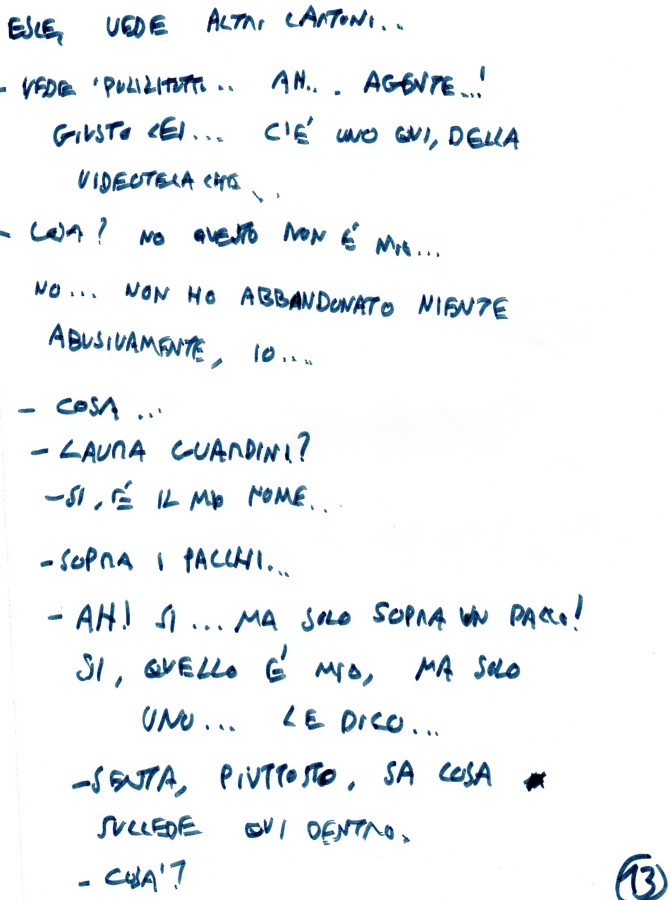 ESCE, VEDE ALTRI CARTONI..
- VEDE 'PULIZITUTTI.. AH... AGENTE...!
GIUSTO LEI... C'E' UNO QUI, DELLA
VIDEOTECA CHE...
- COSA? NO QUESTO NON É MIO...
NO... NON HO ABBANDONATO NIENTE
ABUSIVAMENTE, IO....
- COSA...
- LAURA GUARDINI?
- SI, É IL MIO NOME...
- SOPRA I PACCHI...
- AH! SI... MA SOLO SOPRA UN PACCO!
SI, QUELLO E' MIO, MA SOLO
UNO... LE DICO...
- SENTA, PIUTTOSTO, SA COSA
SUCCEDE QUI DENTRO.
- COSA'?
13